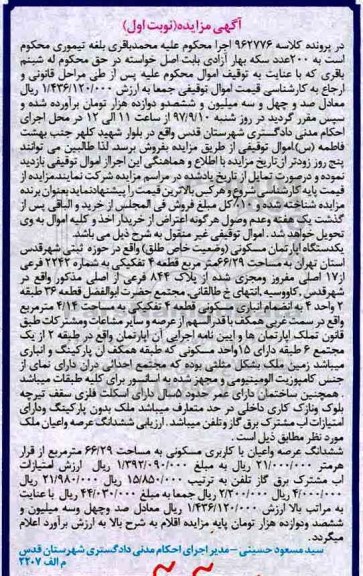 آگهی مزایده(نوبت اول)
در پرونده کلاسه ۹۶۲۷۷۶ اجرا محکوم علیه محمدباقری بلغه تیموری محکوم
است به ۲۰۰عدد سکه بهار آزادی بابت اصل خواسته در حق محکوم له شبنم
باقری که با عنایت به توقیف اموال محکوم علیه پس از طی مراحل قانونی و
ارجاع به کارشناسی قیمت اموال توقیفی جمعا به ارزش ۱/۴۳۶/۱۲۰/۰۰۰ ریال
معادل صد و چهل و سه میلیون و ششصدو دوازده هزار تومان برآورده شده و
سپس مقرر گردید در روز شنبه ۹۷/۹/۱۰ از ساعت ۱۱ الی ۱۲ در محل اجرای
احکام مدنی دادگستری شهرستان قدس واقع در بلوار شهید کلهر جنب بهشت
فاطمه (س) اموال توقیفی از طریق مزایده بفروش برسد. لذا طالبین می توانند
پنج روز زودتر از تاریخ مزایده با اطلاع و هماهنگی این اجرااز اموال توقیفی بازدید
نموده و درصورت تمایل از تاریخ یادشده در مراسم مزایده شرکت نمایند.مزایده از
قیمت پایه کارشناسی شروع و هر کس بالاترین قیمت را پیشنهادنماید بعنوان برنده
مزایده شناخته شده و ۱۰٪ کل مبلغ فروش فی المجلس از خرید و الباقی پس از
گذشت یک هفته وعدم وصول هرگونه اعتراض از خریدار اخذ و کلیه اموال به وی
تحویل خواهد شد. اموال توقیفی غیر منقول به شرح ذیل می باشد.
یکدستگاه آپارتمان مسکونی (وضعیت خاص طلق) واقع در حوزه ثبتی شهرقدس
استان تهران به مساحت ۶۶/۲۹متر مربع قطعه ۴ تفکیکی به شماره ۲۲۴۲ فرعی
از۱۷ اصلی مفروز ومجزی شده از پلاک ۸۴۴ فرعی از اصلی مذکور واقع در
شهرقدس ،کاووسیه ،انتهای خ طالقانی، مجتمع حضرت ابوالفضل قطعه ۳۶ طبقه
۲ واحد ۴ بانضمام انباری مسکونی قطعه ۴ تفکیکی به مساحت ۴/۱۴ مترمربع
واقع در سمت غربی همکف با قدرالسهم از عرصه و سایر مشاعات ومشترکات طبق
قانون تملک آپارتمان ها و آیین نامه اجرایی آن آپارتمان واقع در طبقه ۲ از یک
مجتمع ۶ طبقه دارای ۱۵واحد مسکونی که طبقه همکف آن پارکینگ و انباری
میباشد زمین ملک بشکل مثلثی بوده که مجتمع احداثی درآن دارای نمای از
جنس کامپوزیت آلومینیومی و مجهز شده به آسانسور برای کلیه طبقات میباشد
. همچنین ساختمان دارای عمر حدود ۵سال دارای اسکلت فلزی سقف تیرچه
بلوک ونازک کاری داخلی در حد متعارف میباشد ملک بدون پارکینگ ودارای
امتیازات آب مشترک برق گاز وتلفن میباشد. ارزیابی ششدانگ عرصه واعیان ملک
مورد نظر مطابق ذیل است.
ششدانگ عرصه واعیان با کاربری مسکونی به مساحت ۶۶/۲۹ مترمربع از قرار
هرمتر ۲۱/۰۰۰/۰۰۰ ریال به مبلغ ۱/۳۹۲/۰۹۰/۰۰۰ ریال ارزش امتیازات
آب مشترک برق گاز تلفن به ترتیب ۱۵/۸۵۰/۰۰۰ ریال ۲۱/۹۸۰/۰۰۰ ریال
۴/۰۰۰/۰۰۰ ریال ۲/۲۰۰/۰۰۰ ریال جمعا به مبلغ ۴۴/۰۳۰/۰۰۰ ریال با عنایت
به مراتب بالا ارزش ۱/۴۳۶/۱۲۰/۰۰۰ ریال معادل صد وچهل وسه میلیون و
ششصد ودوازده هزار تومان پایه مزایده اقلام به شرح بالا به ارزش برآورد اعلام
میگردد.
سید مسعود حسینی – مدیر اجرای احکام مدنی دادگستری شهرستان قدس
م الف ۲۲۰۷